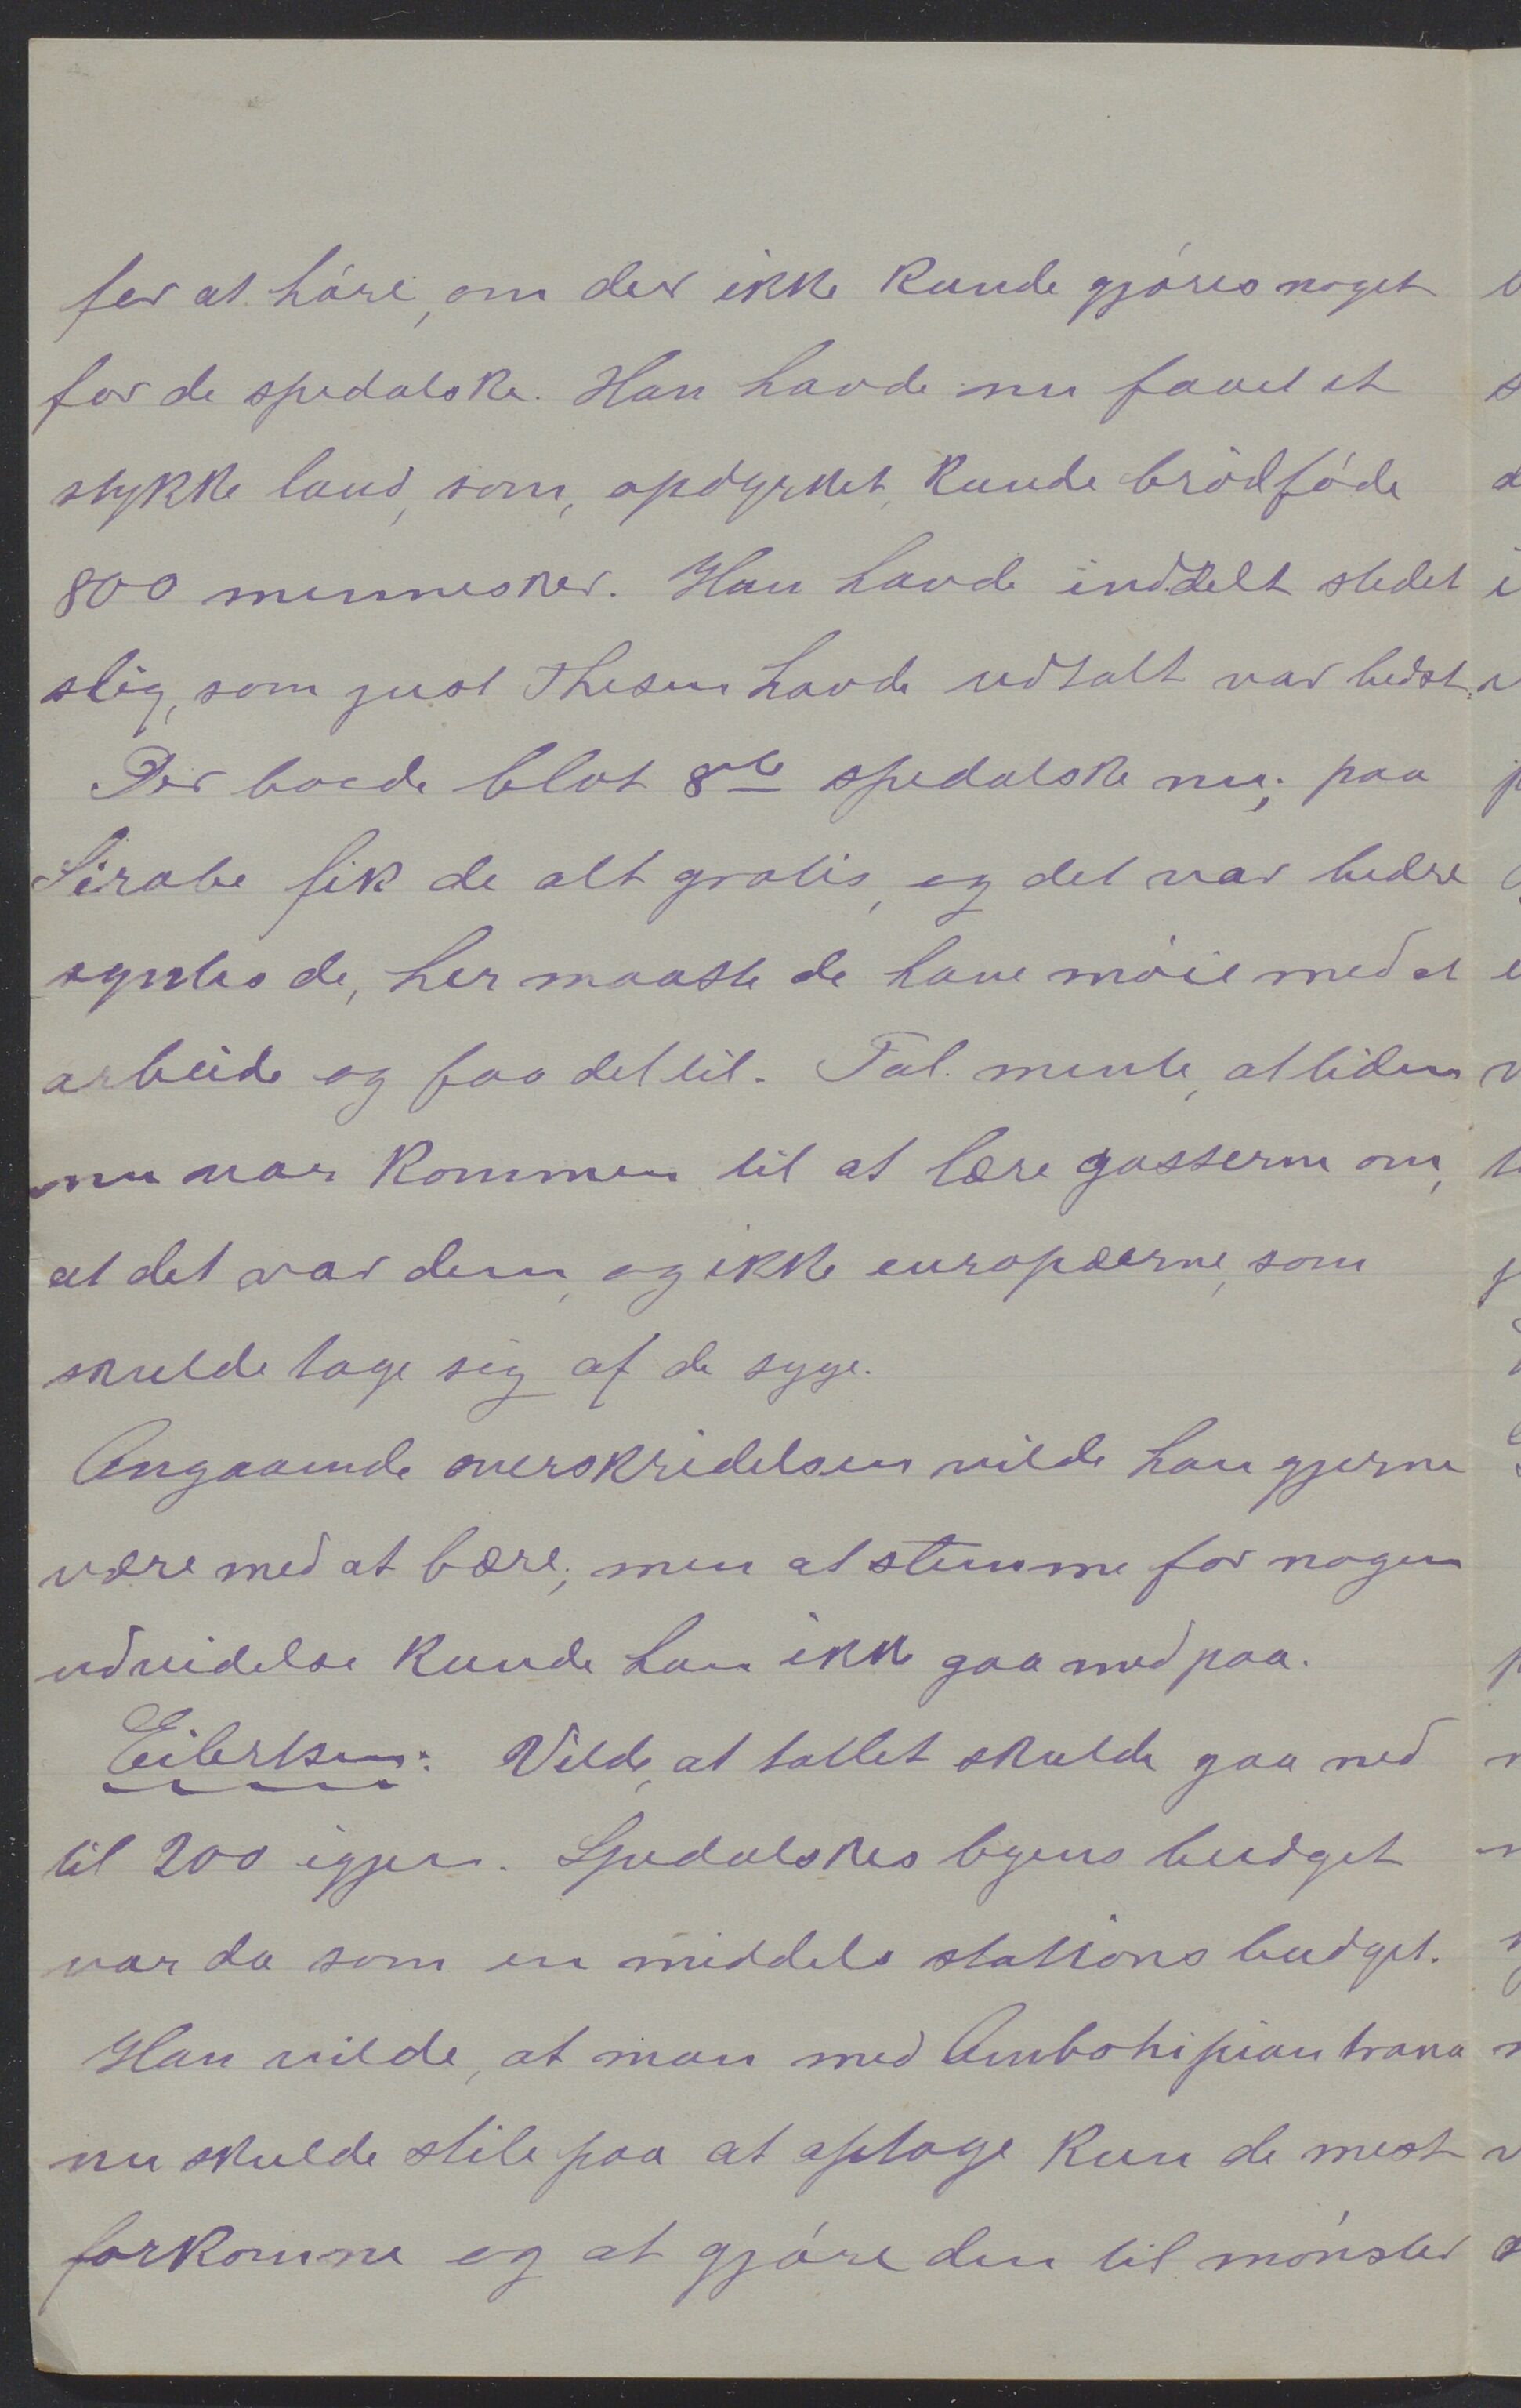 for at hóre, om der ikke kunde gjóres noget
for de spedalske. Han havde nu faaet et
stykke land, som, opdyrket, kunde bródfóde
800 mennesker. Han havde inddelt stedet
slig, som just Thesen havde udtalt var bedst.
Der boede blot 8te spedalske nu; paa
Sirabe fik de alt gratis, og det var bedre
syntes de, her maatte de have móie med at
arbeide og faa det til. Tal. mente, at tiden
nu var kommen til at lære gasserne om,
at det var dem, og ikke europæerne, som
skulde tage sig af de syge.
Angaaende overskridelsen vilde han gjerne
være med at bære; men at stemme for nogen
udvidelse kunde han ikke gaa med paa.
Eilertsen: Vilde, at tallet skulde gaa ned
til 200 igjen. Spedalskes byens budget
var da som en middels stations budget.
Han vilde, at man med Ambohipiantrana
nu skulde stile paa at optage kun de mest
forkomne og at gjóre den til mónster